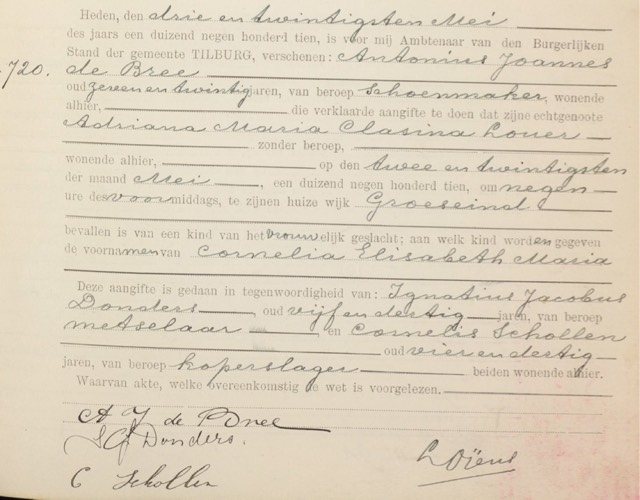 Heden, den drie en twintigsten Mei
des jaars een duizend negen honderd tien, is voor mij Ambtenaar van den Burgerlijken
Stand der gemeente TILBURG, verschenen: Antonius Joannes
720. de Bree
oud zeven en twintig jaren, van beroep schoenmaker, wonende
alhier, die verklaarde aangifte te doen dat zijne echtgenoote
Adriana Maria Clasina Louer
zonder beroep,
wonende alhier, op den twee en twintigsten
der maand Mei, een duizend negen honderd tien, om negen
ure des voormiddags, te zijnen huize wijk Groeseind
bevallen is van een kind van het vrouwelijk geslacht; aan welk kind worden gegeven
de voornamen van Cornelia Elisabeth Maria
Deze aangifte is gedaan in tegenwoordigheid van: Ignatius Jacobus
Donders, oud vijf en dertig jaren, van beroep
metselaar en Cornelis Schollen
oud vier en dertig
jaren, van beroep koperslager beiden wonende alhier.
Waarvan akte, welke overeenkomstig de wet is voorgelezen.
A J de Bree
Donders.
C Schollen